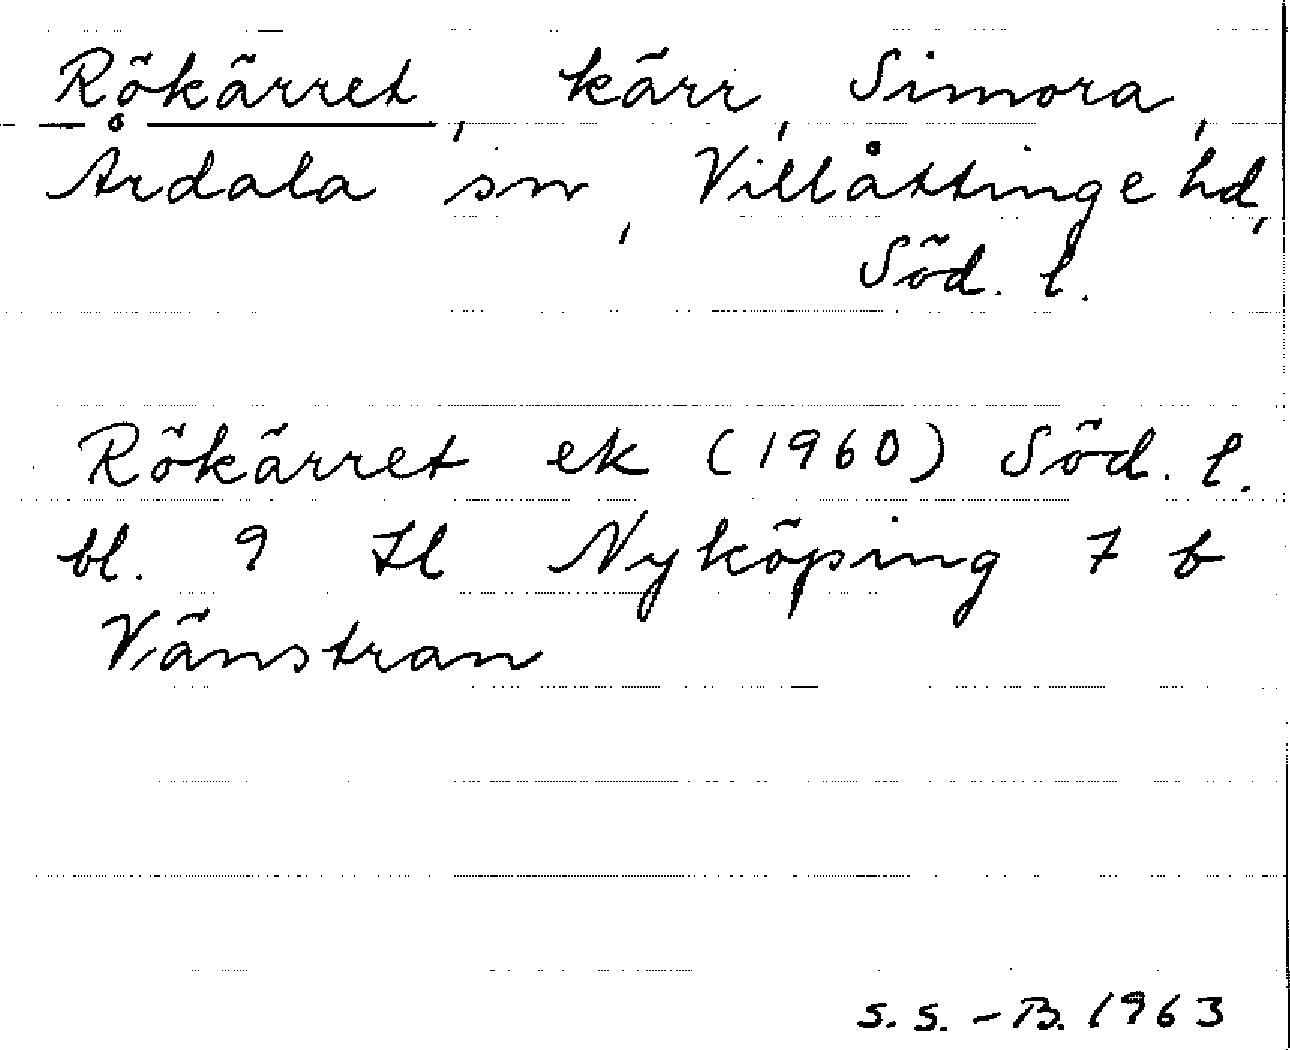 Rökärret, kärr, Simora,
Årdala sn, Villåttinge hd,
Söd. l.
Rökärret ek (1960) Söd. l.
bl. 9 Il Nyköping 7 b
Vänstran
S. S. - B. 1963